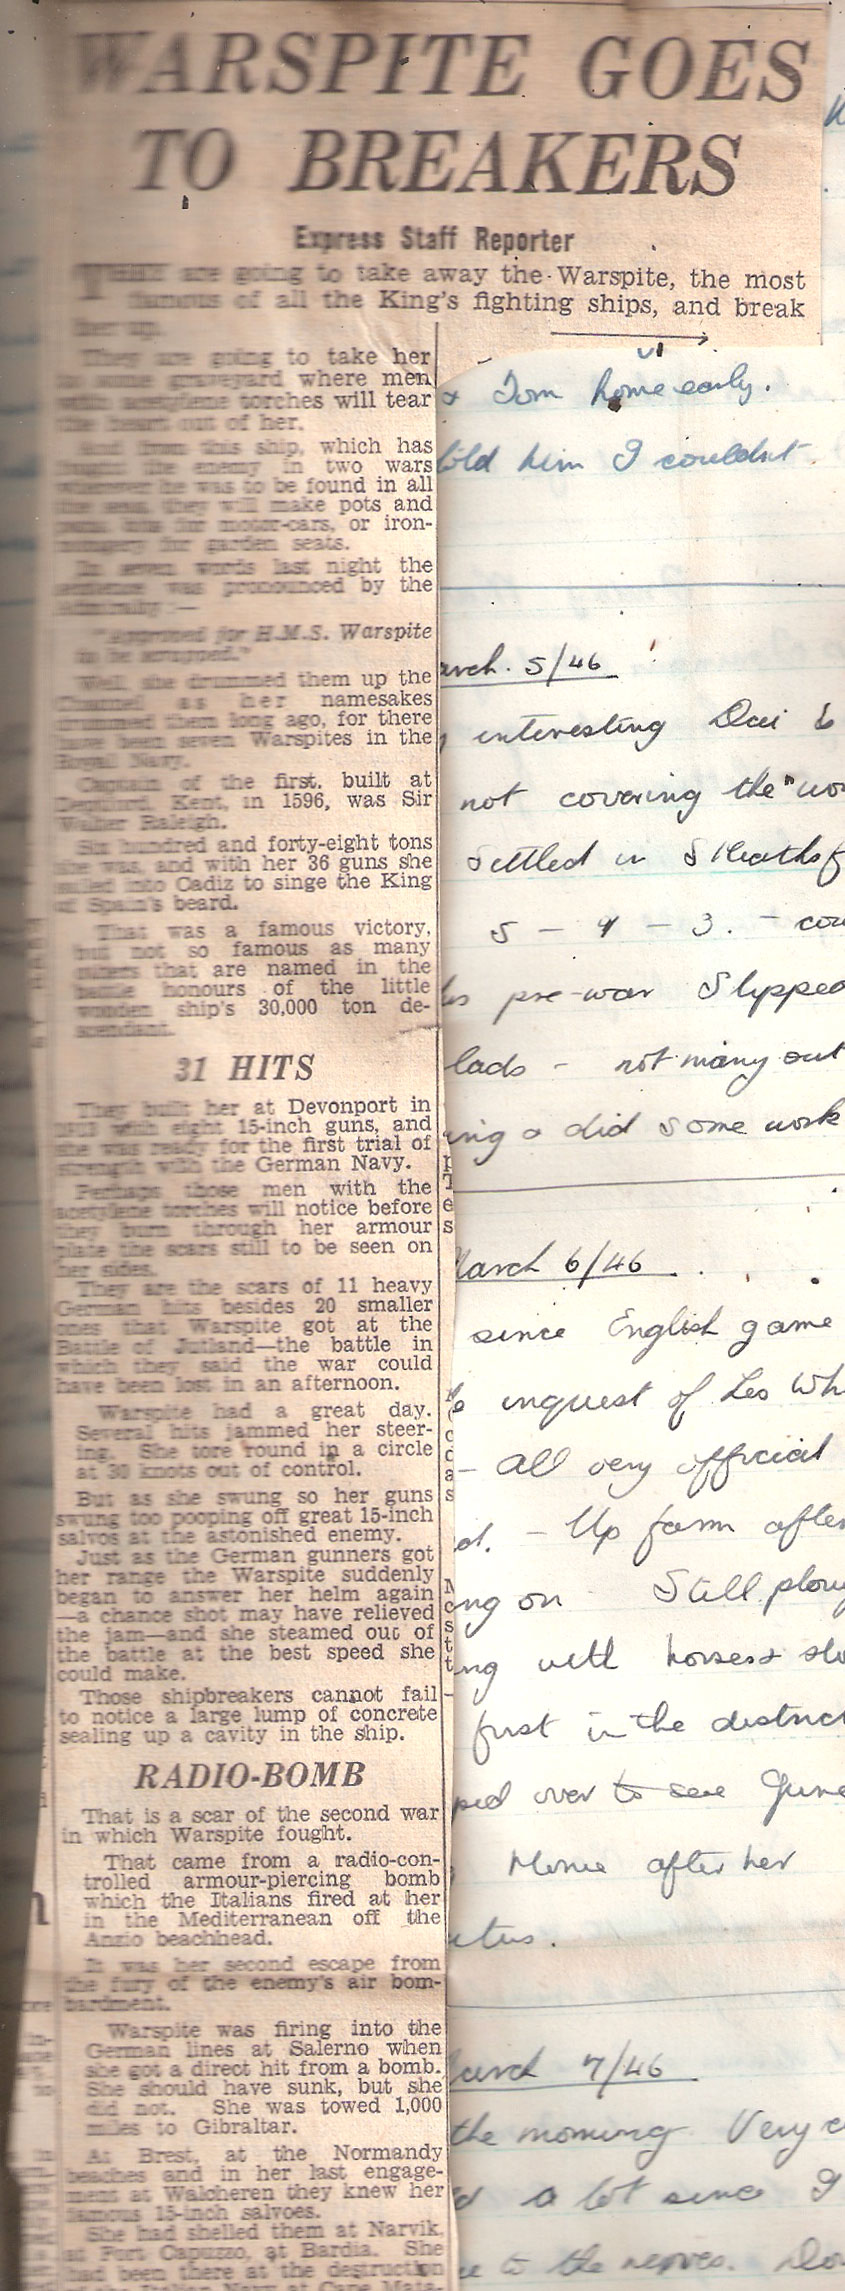 WARSPITE GOES
TO BREAKERS
Express Staff Reporter
THEY are going to take away the Warspite, the most
famous of all the King's fighting ships, and break
her up.
They are going to take her
to some graveyard where men
with acetylene torches will tear
the heart out of her.
And from this ship, which has
fought the enemy in two wars
he was to be found in all
the seas, they will make pots and
for motor-cars, or iron-
mongery for garden seats.
In seven words last night the
sentence was pronounced by the
Admiralty :—
"Approved for H.M.S. Warspite
to be scrapped."
Well, she drummed them up the
Channel as her namesakes
drummed them long ago, for there
have been seven Warspites in the
Royal Navy.
Captain of the first, built at
Deptford, Kent, in 1596, was Sir
Walter Raleigh.
Six hundred and forty-eight tons
she was, and with her 36 guns she
sailed into Cadiz to singe the King
of Spain's beard.
That was a famous victory,
but not so famous as many
others that are named in the
battle honours of the little
wooden ship's 30,000 ton de-
scendant.
31 HITS
They built her at Devonport in
1913 with eight 15-inch guns, and
she was ready for the first trial of
strength with the German Navy.
Perhaps those men with the
acetylene torches will notice before
they burn through her armour
plate the scars still to be seen on
her sides.
They are the scars of 11 heavy
German hits besides 20 smaller
ones that Warspite got at the
Battle of Jutland—the battle in
which they said the war could
have been lost in an afternoon.
Warspite had a great day.
Several hits jammed her steer-
ing. She tore round in a circle
at 30 knots out of control.
But as she swung so her guns
swung too pooping off great 15-inch
salvos at the astonished enemy.
Just as the German gunners got
her range the Warspite suddenly
began to answer her helm again
—a chance shot may have relieved
the jam—and she steamed out of
the battle at the best speed she
could make.
Those shipbreakers cannot fail
to notice a large lump of concrete
sealing up a cavity in the ship.
RADIO-BOMB
That is a scar of the second war
in which Warspite fought.
That came from a radio-con-
trolled armour-piercing bomb
which the Italians fired at her
in the Mediterranean off the
Anzio beachhead.
It was her second escape from
the fury of the enemy's air bom-
bardment.
Warspite was firing into the
German lines at Salerno when
she got a direct hit from a bomb.
She should have sunk, but she
did not. She was towed 1,000
miles to Gibraltar.
At Brest, at the Normandy
beaches and in her last engage-
ment at Walcheren they knew her
famous 15-inch salvoes.
She had shelled them at Narvik,
at Fort Capuzzo, at Bardia. She
had been there at the destruction
of the Italian Navy at Cape Mata-
& Tom home early.
told him I couldnt
arch. 5/46
interesting Dai
not covering the
Settled in
5 - 9 - 3. -
pre-war Slipped
lads - not many out
ing & did some work
March 6/46
since English game
inquest of Les
- All very official
- Up farm after
ng on Still
ng with horses &
first in the district
ped over to see
Home after her
March 7/46
the morning. Very
a lot since I
to the nerves.